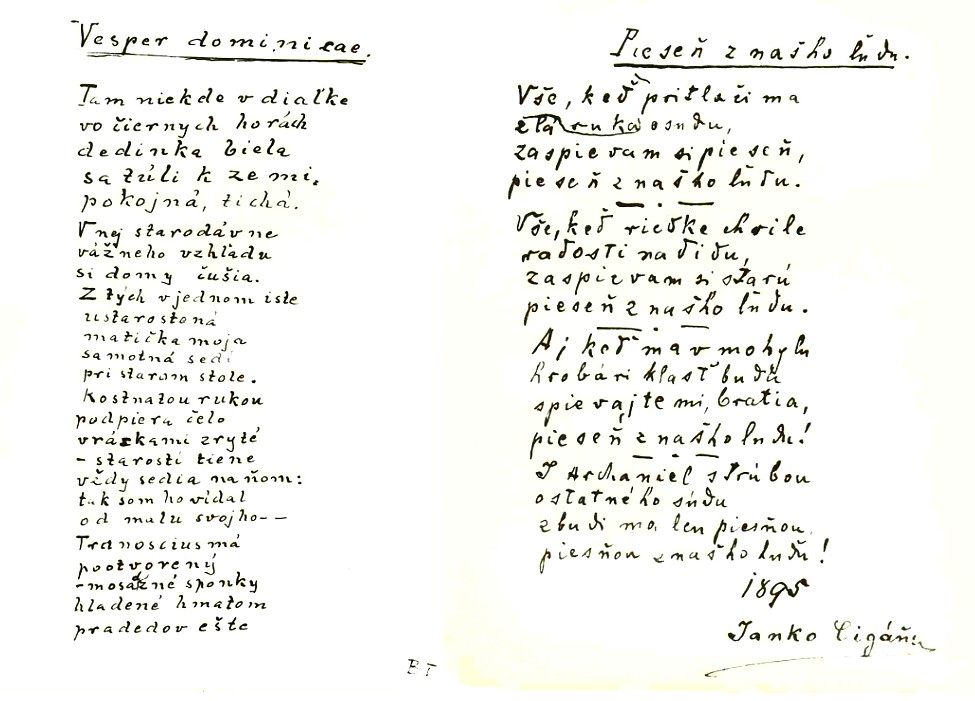 Vesper dominicae.
Tam niekde v diaľke
vo čiernych horách
dedinka biela
sa túli k zemi,
pokojná, tichá.
V nej starodávne
vážneho vzhľadu
si domy čušia.
Z tých v jednom iste
ustarostená
matička moja
samotná sedí
pri starom stole.
Kostnatou rukou
podpiera čelo
vráskami zryté
- starosti tiene
vždy sedia na ňom:
tak som ho vídal
od malu svojho--
Tranoscius má
pootvorený
-mosazné sponky
hladené hmatom
pradedov ešte
BT
Pieseň z našho ľudu.
Vše, keď pritlačí ma
zlá ruka osudu,
zaspievam si pieseň,
pieseň z našho ľudu.
Vše, keď riedke chvíle
radosti nadídu,
zaspievam si starú
pieseň z našho ľudu.
Aj keď ma v mohylu
hrobári klasť budú
spievajte mi, bratia,
pieseň z našho ludu!
I Archanjel s trúbou
ostatného súdu
zbudí ma len piesňou,
piesňou z našho ludu!
1895
Janko Cigáňu